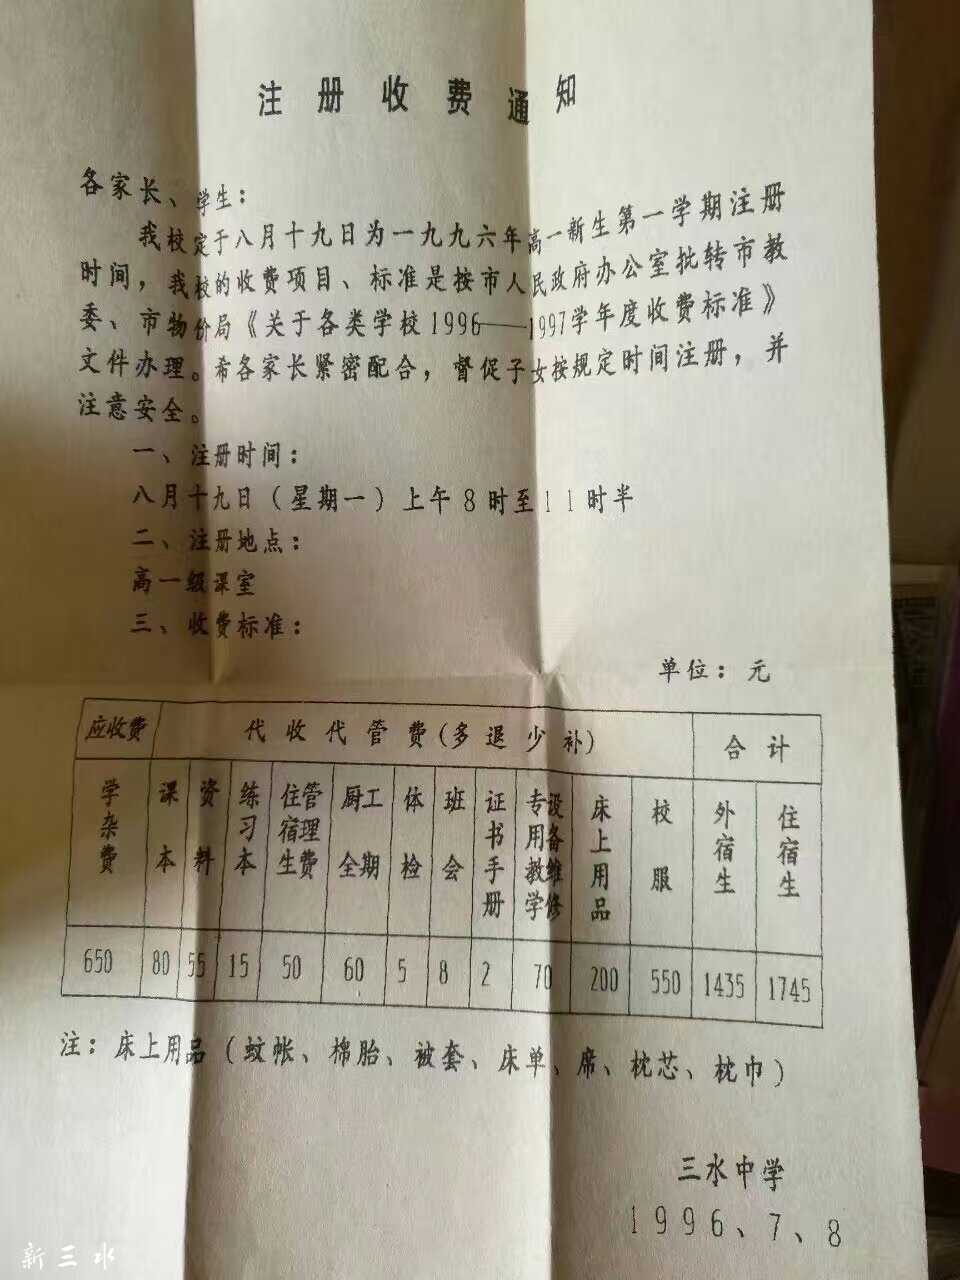 注册收费通知
各家长、学生：
我校定于八月十九日为一九九六年高一新生第一学期注册
时间，我校的收费项目、标准是按市人民政府办公室批转市教
委、市物价局《关于各类学校1996——1997学年度收费标准》
文件办理。希各家长紧密配合，督促子女按规定时间注册，并
注意安全。
一、注册时间：
八月十九日（星期一）上午8时至11时半
二、注册地点：
高一级课室
三、收费标准：
单位：元
应收费 代收代管费(多退少补) 合计
学杂费 课本 资料 练习本 住宿生管理费 厨工全期 体检 班会 证书手册 专用教学设备维修 床上用品 校服 外宿生 住宿生
650 80 55 15 50 60 5 8 2 70 200 550 1435 1745
注：床上用品（蚊帐、棉胎、被套、床单、席、枕芯、枕巾）
三水中学
1996、7、8
新三水